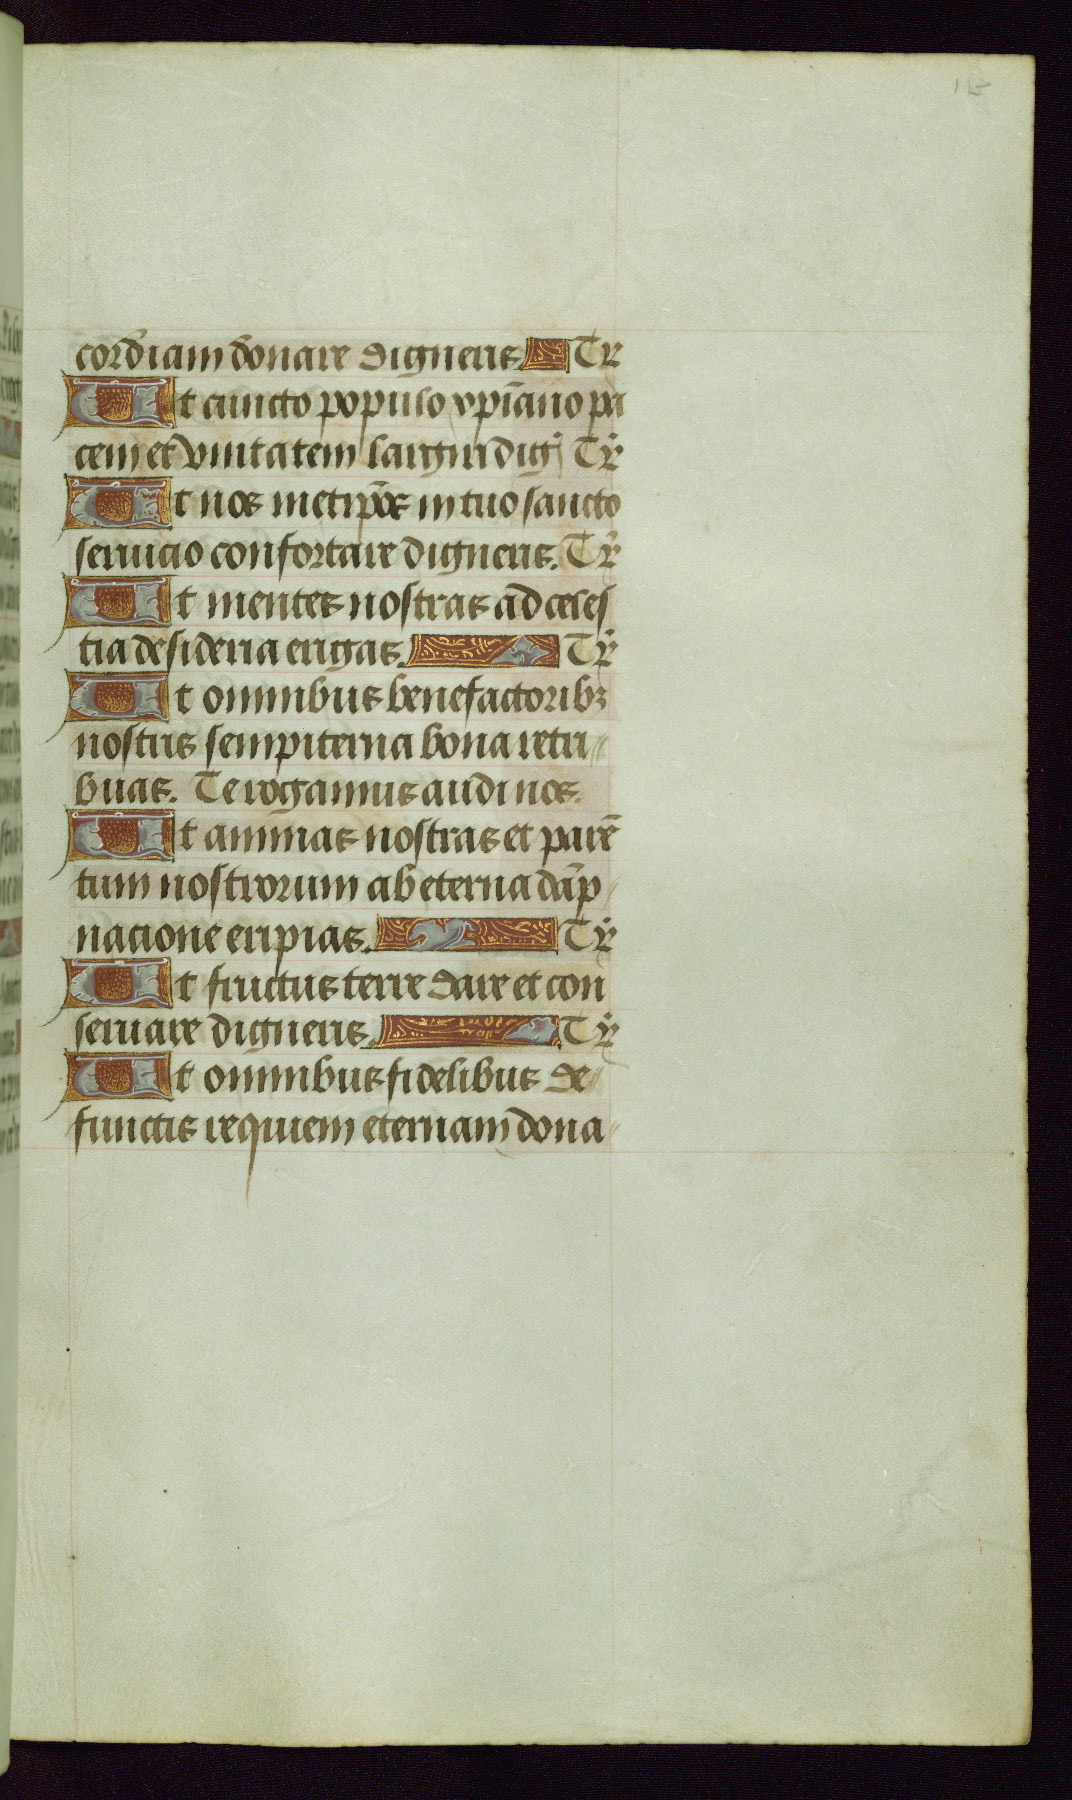 115
cordiam donare digneris Tr̃
Ut cuncto populo xp̃iano pa
cem et vnitatem largiri dig̃ Tr̃
Ut nos metip̃os in tuo sancto
seruicio confortare digneris. Tr̃
Ut mentes nostras ad celes
tia desideria erigas. Tr̃
Ut omnibus benefactoribꝫ
nostris sempiterna bona retri
buas. Te rogamus audi nos.
Ut animas nostras et parẽ
tum nostrorum ab eterna dãp
nacione eripias. Tr̃
Ut fructus terre dare et con
seruare digneris. Tr̃
Ut omnibus fidelibus de
functis requiem eternam dona